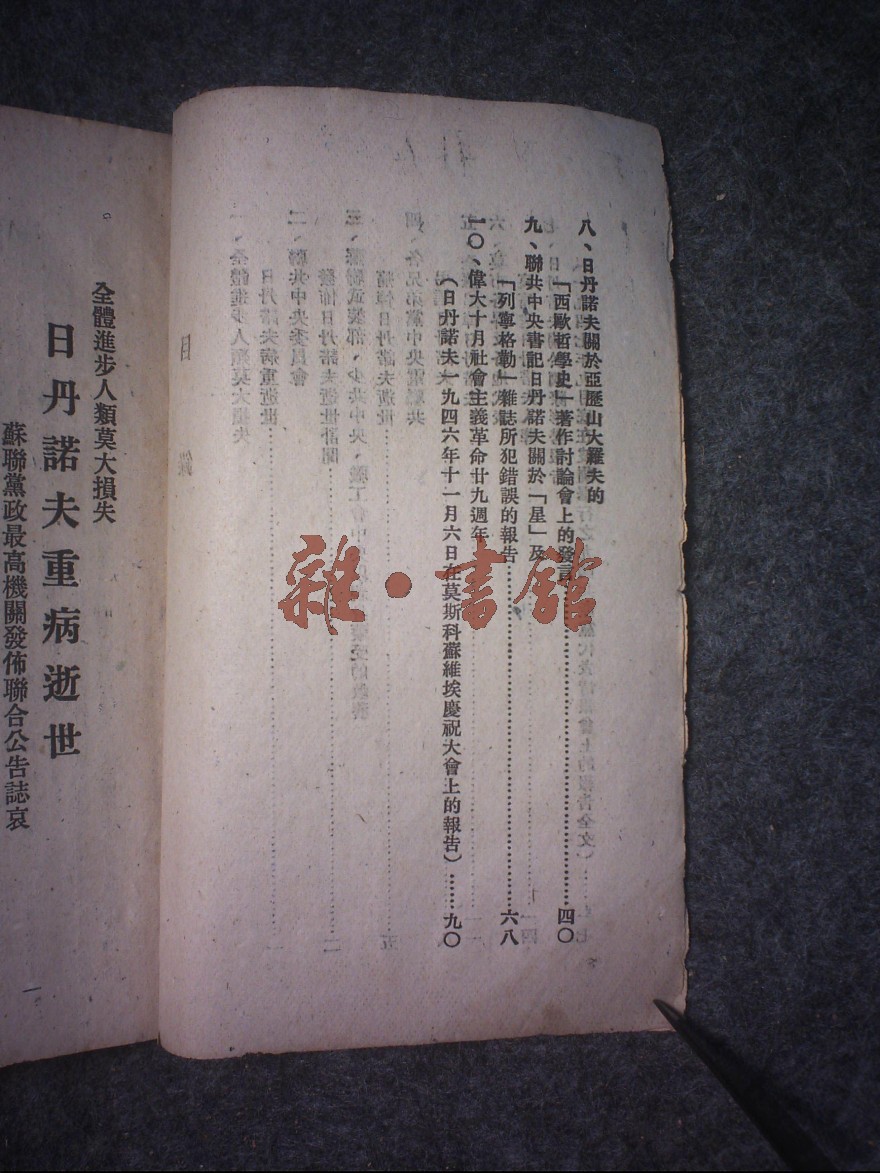 八、日丹諾夫關於亞歷山大羅夫的
「西歐哲學史」著作討論會上的發言………四〇
九、聯共中央書記日丹諾夫關於「星」及
「列寧格勒」雜誌所犯錯誤的報告………六八
一〇、偉大十月社會主義革命廿九週年
(日丹諾夫一九四六年十一月六日在莫斯科蘇維埃慶祝大會上的報告)……九〇
雜·書館
全體進步人類莫大損失
日丹諾夫重病逝世
蘇聯黨政最高機關發佈聯合公告誌哀
一